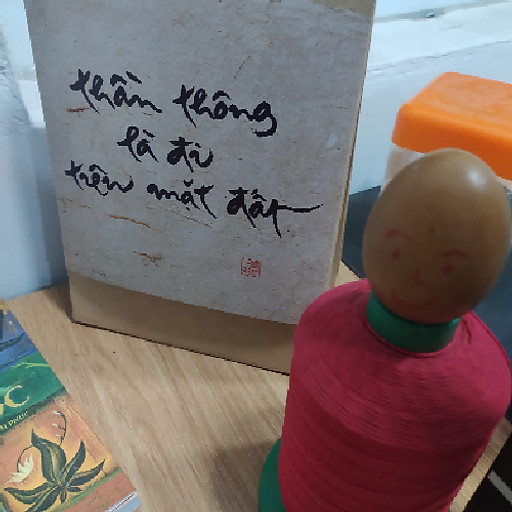 thần thông
là đi
trên mặt đất